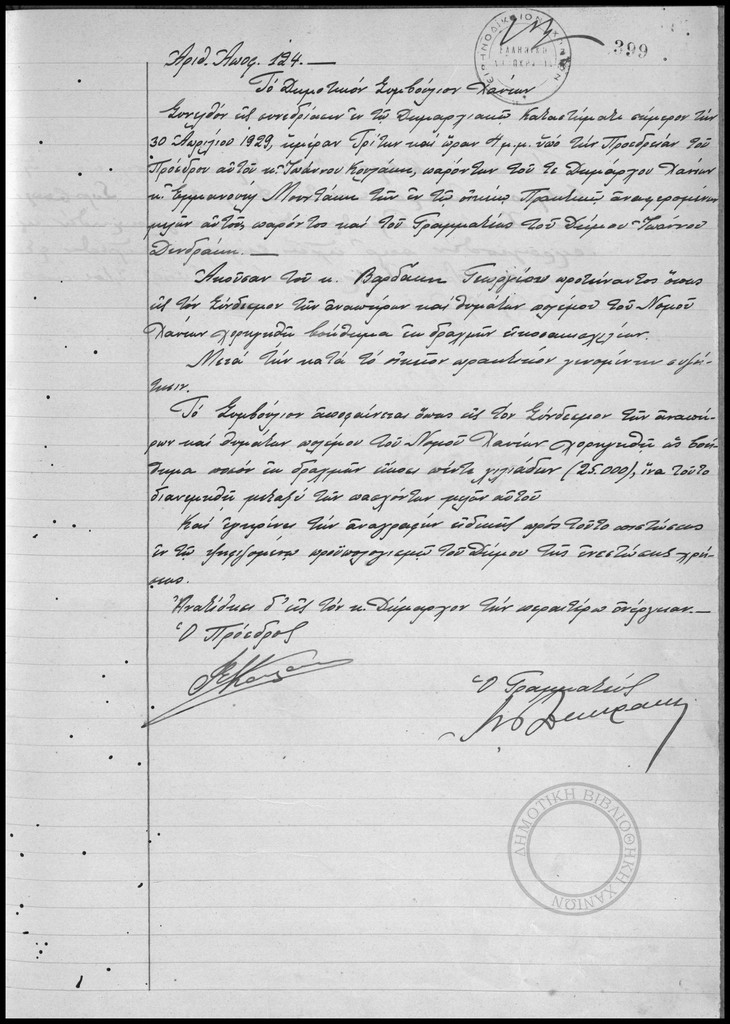 399
ΕΙΡΗΝΟΔΙΚΕΙΟΝ ΧΑΝΙΩΝ
Ἀριθ. Ἀποφ. 124.—
Τό Δημοτικόν Συμβούλιον Χανίων
Συνελθόν εἰς συνεδρίασιν ἐν τῷ Δημαρχιακῷ Καταστήματι σήμερον τήν
30 Ἀπριλίου 1929, ἡμέραν Τρίτην καί ὥραν 4 μ.μ. ὑπό τήν Προεδρείαν τοῦ
Προέδρου αὐτοῦ κ. Ἰωάννου, παρόντων τοῦ τε Δημάρχου Χανίων
κ. Ἐμμανουήλ Μουντάκη τῶν ἐν τῷ οἰκείῳ Πρακτικῷ ἀναφερομένων
μελῶν αὐτοῦ, παρόντος καί τοῦ Γραμματέως τοῦ Δήμου Ἰωάννου
Δενδράκη.—
Ἀκοῦσαν τοῦ κ. Βαρδάκη Γεωργίου προτείναντος ὅπως
εἰς τόν Σύνδεσμον τῶν ἀναπήρων καί θυμάτων πολέμου τοῦ Νομοῦ
Χανίων χορηγηθῇ βοήθημα ἐκ δραχμῶν εἰκοσακισχιλίων.
Μετά τήν κατά τό οἰκεῖον πρακτικόν γενομένην συζή-
τησιν.
Τό Συμβούλιον ἀποφαίνεται ὅπως εἰς τόν Σύνδεσμον τῶν ἀναπή-
ρων καί θυμάτων πολέμου τοῦ Νομοῦ Χανίων χορηγηθῇ ὡς βοή-
θημα ποσόν ἐκ δραχμῶν εἴκοσι πέντε χιλιάδων (25.000), ἵνα τοῦτο
διανεμηθῇ μεταξύ τῶν πασχόντων μελῶν αὐτοῦ
Καί ἐγκρίνει τήν ἀναγραφήν εἰδικῆς πρός τοῦτο πιστώσεως
ἐν τῷ ψηφιζομένῳ προϋπολογισμῷ τοῦ Δήμου τῆς ἐνεστώσης χρή-
σεως.
Ἀνατίθησι δ' εἰς τόν κ. Δήμαρχον τήν περαιτέρω ἐνέργειαν.—
Ὁ Πρόεδρος
Ὁ Γραμματεύς
ΔΗΜΟΤΙΚΗ ΒΙΒΛΙΟΘΗΚΗ ΧΑΝΙΩΝ